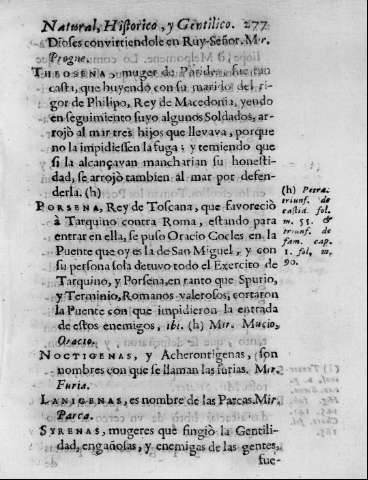 Natural, Historico, y Gentilico. 277
Dioses convirtiendole en Ruy-Señor. Mir.
Progne.
THEOSENA, muger de Paridre, fue tan
casta, que huyendo con su marido del ri-
gor de Philipo, Rey de Macedonia, yendo
en seguimiento suyo algunos Soldados, ar-
rojò al mar tres hijos que llevava, porque
no la impidiessen la fuga; y temiendo que
si la alcançavan mancharian su honesti-
dad, se arrojò tambien al mar por defen-
derla. (h)
PORSENA, Rey de Toscana, que favoreciò
à Tarquino contra Roma, estando para
entrar en ella, se puso Oracio Cocles en la
Puente que oy es la de San Miguel, y con
su persona sola detuvo todo el Exercito de
Tarquino, y Porsena, en tanto que Spurio,
y Terminio, Romanos valerosos, cortaron
la Puente con que impidieron la entrada
de estos enemigos, ibi. (h) Mir. Mucio,
Oracio.
NOCTIGENAS, y Acherontigenas, son
nombres con que se llaman las furias. Mir.
Furia.
LANIGENAS, es nombre de las Parcas. Mir.
Parca.
SYRENAS, mugeres que fingiò la Gentili-
dad, engañosas, y enemigas de las gentes,
fue-
(h) Petra.
triunf. de
castid. fol.
m. 55. &
triunf. de
fam. cap.
1. fol. m.
90.